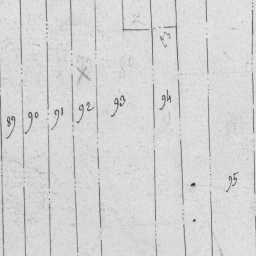 89 90 91 92 93 94
95